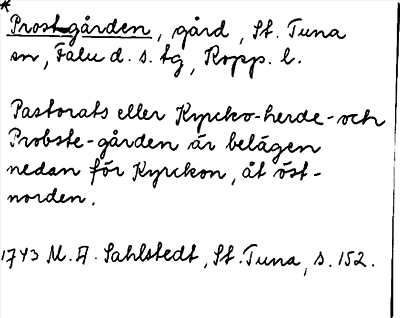 * Prostgården, gård, St. Tuna
sn, Falu d. s. tg, Kopp. l.
Pastorats eller Kyrcko-herde-och
Probste-gården är belägen
nedan för Kyrckon, åt öst-
norden.
1743 M. A. Sahlstedt, St. Tuna, s. 152.